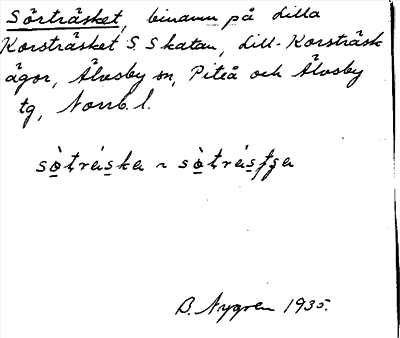 Sörträsket, binamn på Lilla
Korsträsket S. Skatan, Lill-Korsträsk
ägor, Älvsby sn, Piteå och Älvsby
tg, Norrb. l.
sò̤tráska ~ sò̤tráṣţşa
B. Nygren 1935.